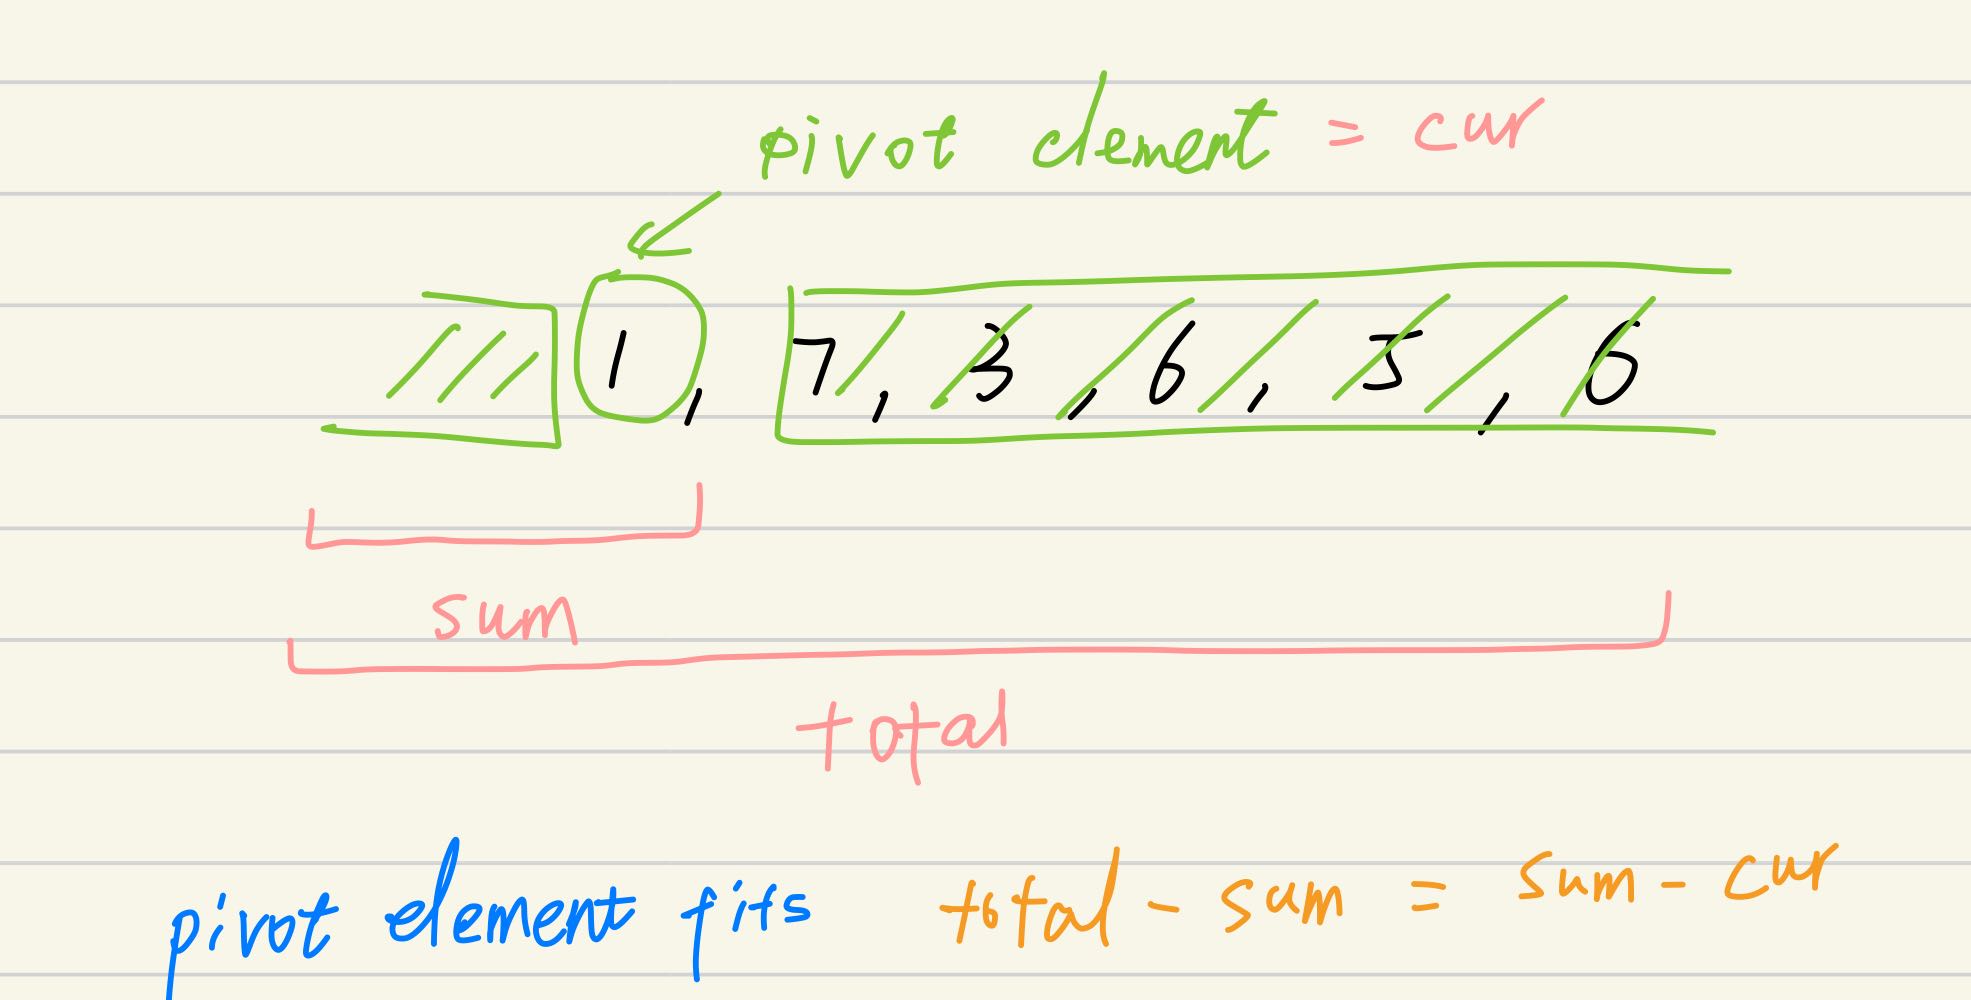 pivot element = cur
1, 7, 3, 6, 5, 6
sum
total
pivot element fits total - sum = sum - cur